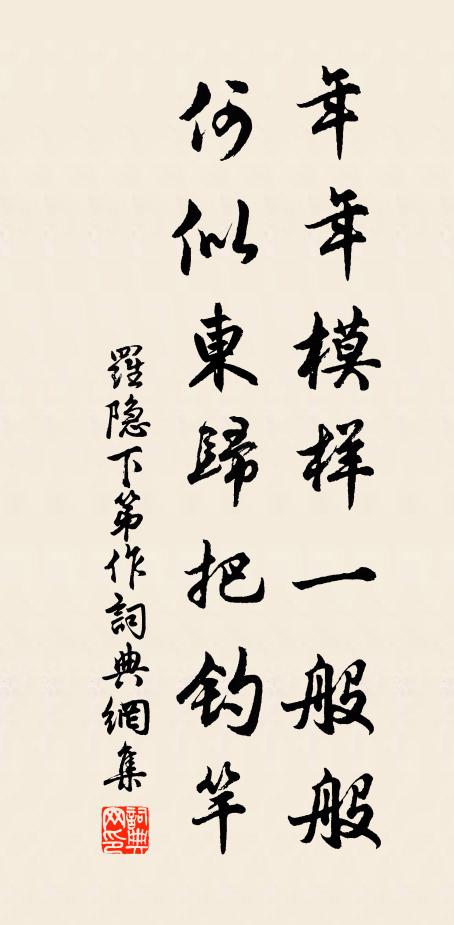 年年模样一般般
何似東歸把釣竿
羅隐下第作詞典網集
詞典网印